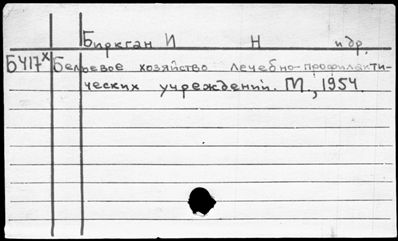 Биркган И Н и др.
Б417х Бельевое хозяйство лечебно-профилакти-
ческих учреждений. М., 1954.